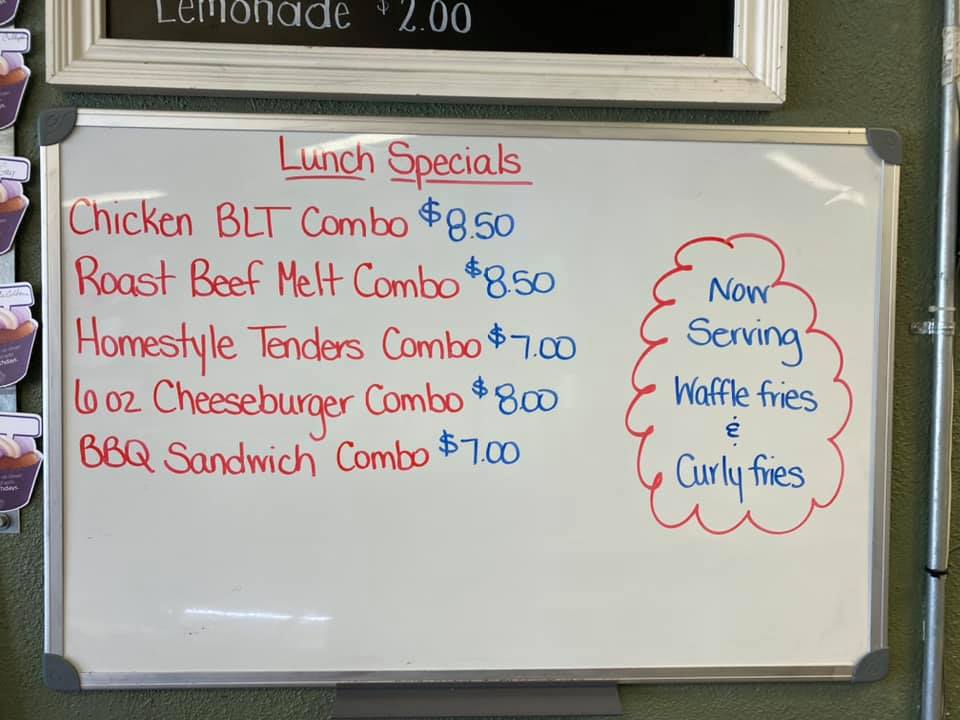 Lemonade $2.00
Lunch Specials
Chicken BLT Combo $8.50
Roast Beef Melt Combo $8.50
Homestyle Tenders Combo $7.00
6 oz Cheeseburger Combo $8.00
BBQ Sandwich Combo $7.00
Now
Serving
Waffle fries
&
Curly fries